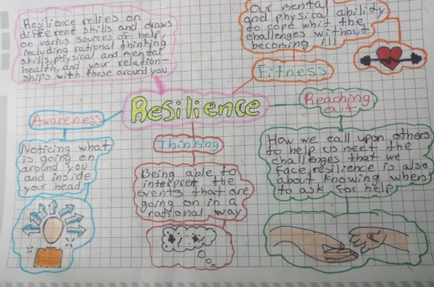 Resilience relies on
different skills and draws
on varius sources of help,
including rational thinking
skills, physical and mental
health, and your relation-
ships with those around you
Our mental
and physical ability
to cope whit the
challenges without
becoming ill
Fitness
Resilience
Reaching
out
Awareness
Noticing what
is going on
around you
and inside
your head
Thinking
Being able to
interpret the
events that are
going on in a
rational way
How we call upon others
to help us meet the
challenges that we
Face, resilience is also
about knowing when
to ask for help